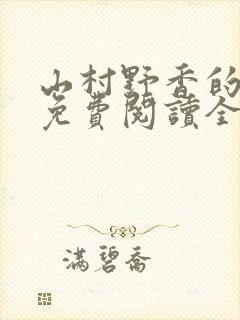 山村野香的
免費閱讀全
滿碧喬